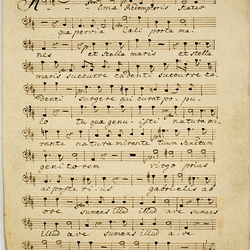 Alma Redemptoris Mater
quae pervia Cæli porta ma-
nes et stella maris et stella
maris succurre cadenti succurre ca-
denti surgere qui curat po pu-
lo tu quæ genuisti natura mi-
rante natura mirante tuum sanctum
genitorem virgo prius
ac posterius gabrielis ab
ore sumens illud illud ave sumens
illud ave sumens illud ave